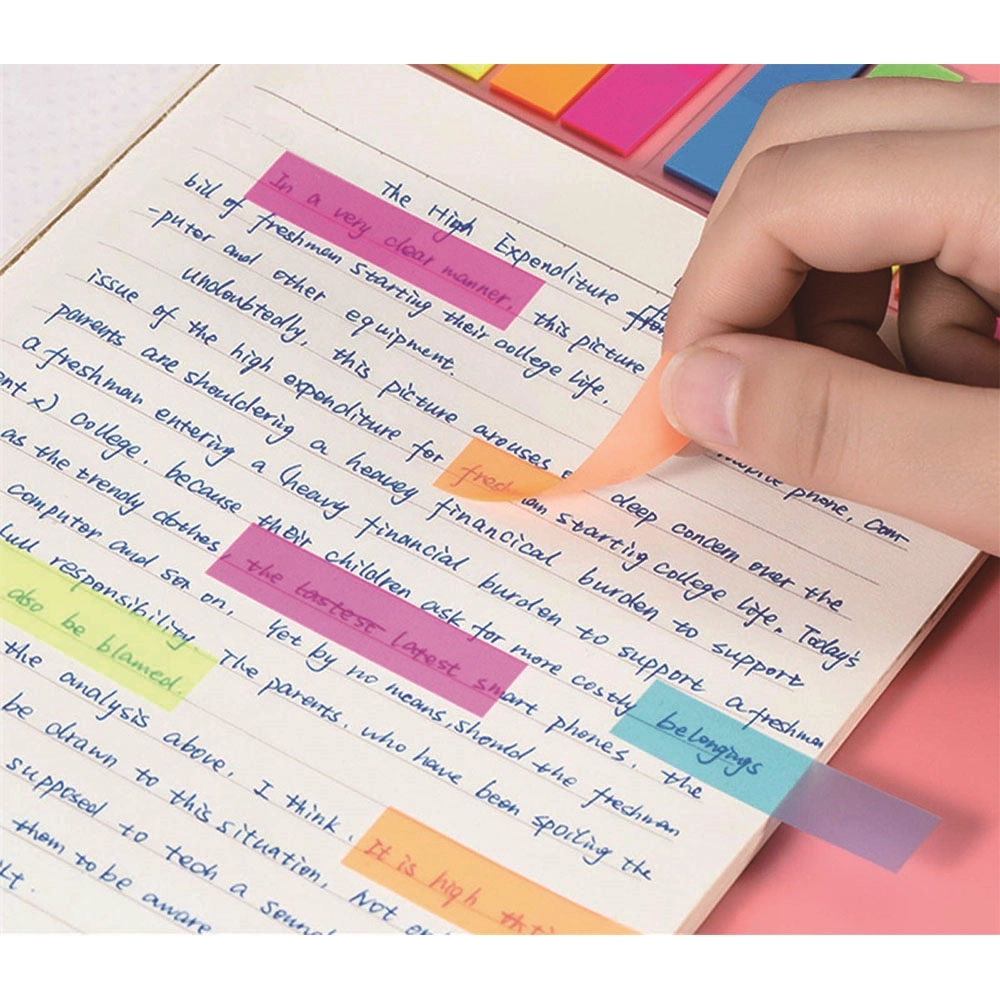 The High Expenditure for
In a very clear manner, this picture phone, com-
bill of freshman starting their college life,
-puter and other equipment.
Undoubtedly, this picture arouses deep concern over the
issue of the high expenditure for freshman starting college life. Today's
parents are shouldering a heavey financical burden to support
a freshman entering a (heavy financial burden to support a freshman
ent x) college, because their children ask for more costly belongings
as the trendy clothes, the tastest latest smart phones, the
computer and son on. Yet by no means should the freshman
responsibility. The parents, who have been spoiling the
also be blamed.
the analysis above, I think, It is high
be drawn to this situation, Not
supposed to tech a sound
them to be aware